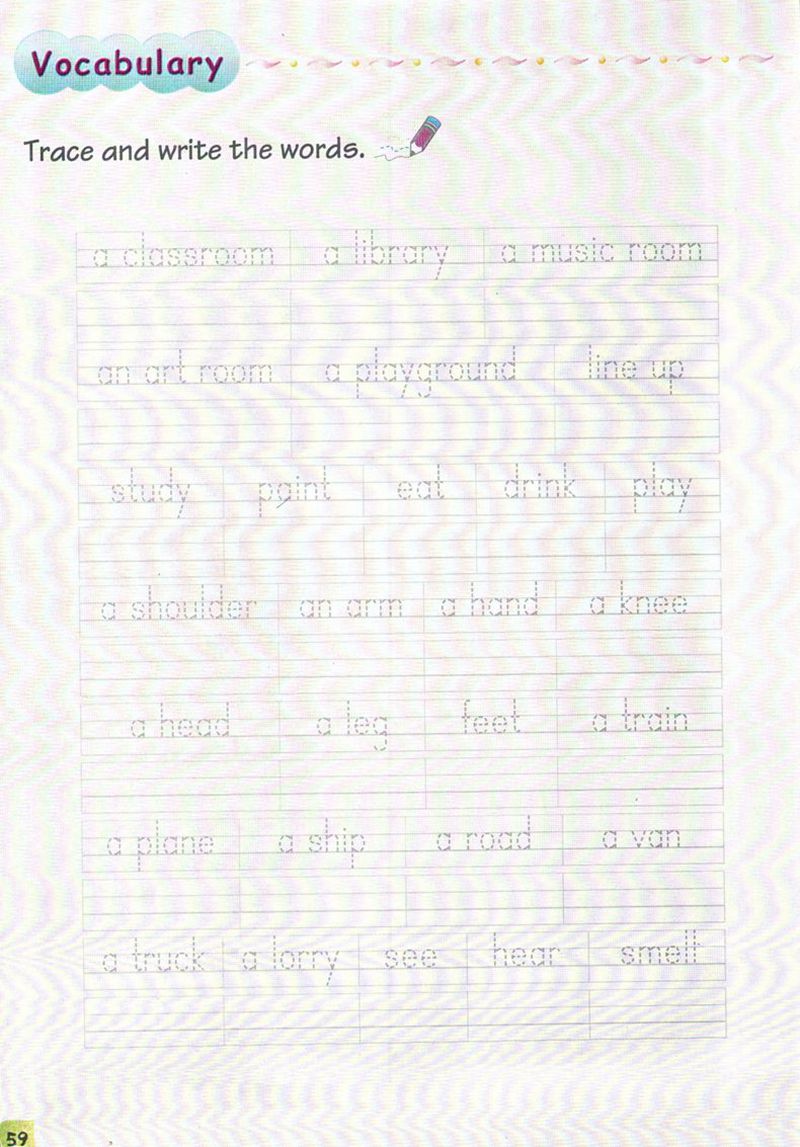 Vocabulary
Trace and write the words.
a classroom a library a music room
an art room a playground line up
study paint eat drink play
a shoulder an arm a hand a knee
a head a leg feet a train
a plane a ship a road a van
a truck a lorry see hear smell
59